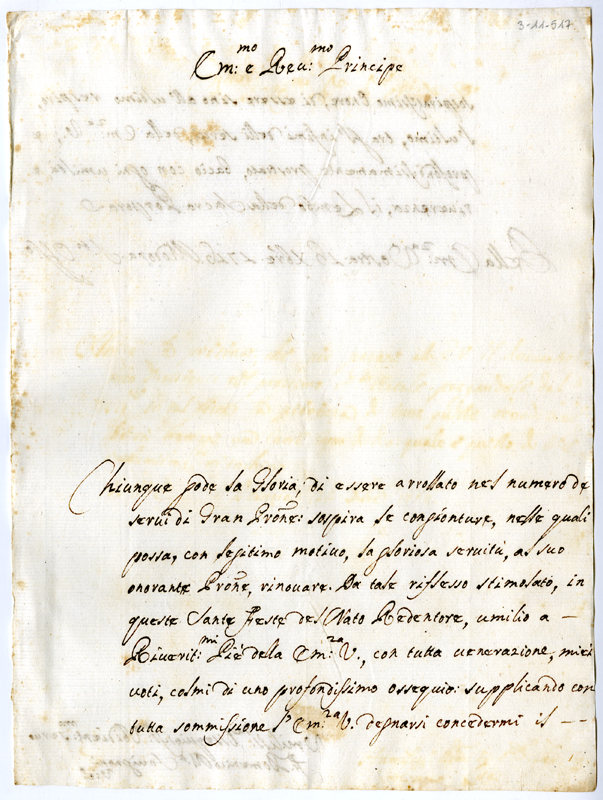 3-11-517
Em:mo e Reu:mo Principe
Chiunque gode la Gloria, di essere arrollato nel numero de
serui di Gran Prõne: sospira le congionture, nelle quali
possa, con legitimo motiuo, la gloriosa seruitù, al suo
onorante Prõne, rinouare. Da tale riflesso stimolato, in
queste Sante Feste del Nato Redentore, umilio a –
Riuerit:mi Piè della Em:za V., con tutta uenerazione, miei
uoti, colmi di uno profondissimo ossequio: supplicando con
tutta sommissione l' Em:za V. degnarsi concedermi il – –